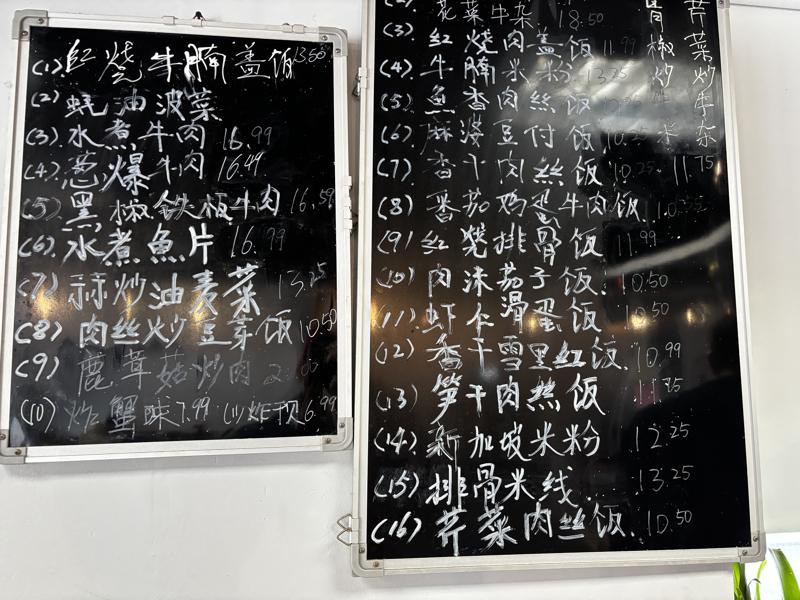 (1) 红烧牛腩盖饭 13.50
(2) 蚝油波菜
(3) 水煮牛肉 16.99
(4) 葱爆牛肉 16.49
(5) 黑椒铁板牛肉 16.59
(6) 水煮魚片 16.99
(7) 蒜炒油麦菜 13.25
(8) 肉丝炒豆芽饭 10.50
(9) 鹿茸菇炒肉
(10) 炸蟹味 7.99
(2) 花菜牛杂 18.50
(3) 红烧肉盖饭 11.99
(4) 牛腩米粉 13.25
(5) 魚香肉丝饭
(6) 麻婆豆付饭 10.25
(7) 香干肉丝饭 10.25
(8) 番茄鸡蛋牛肉饭
(9) 红烧排骨饭 11.99
(10) 肉沫茄子饭 10.50
(11) 虾仁滑蛋饭 10.50
(12) 香干雪里红饭 10.99
(13) 笋干肉丝饭 11.75
(14) 新加坡米粉 12.25
(15) 排骨米线 13.25
(16) 芹菜肉丝饭 10.50
青椒炒
芹菜炒牛杂 11.75